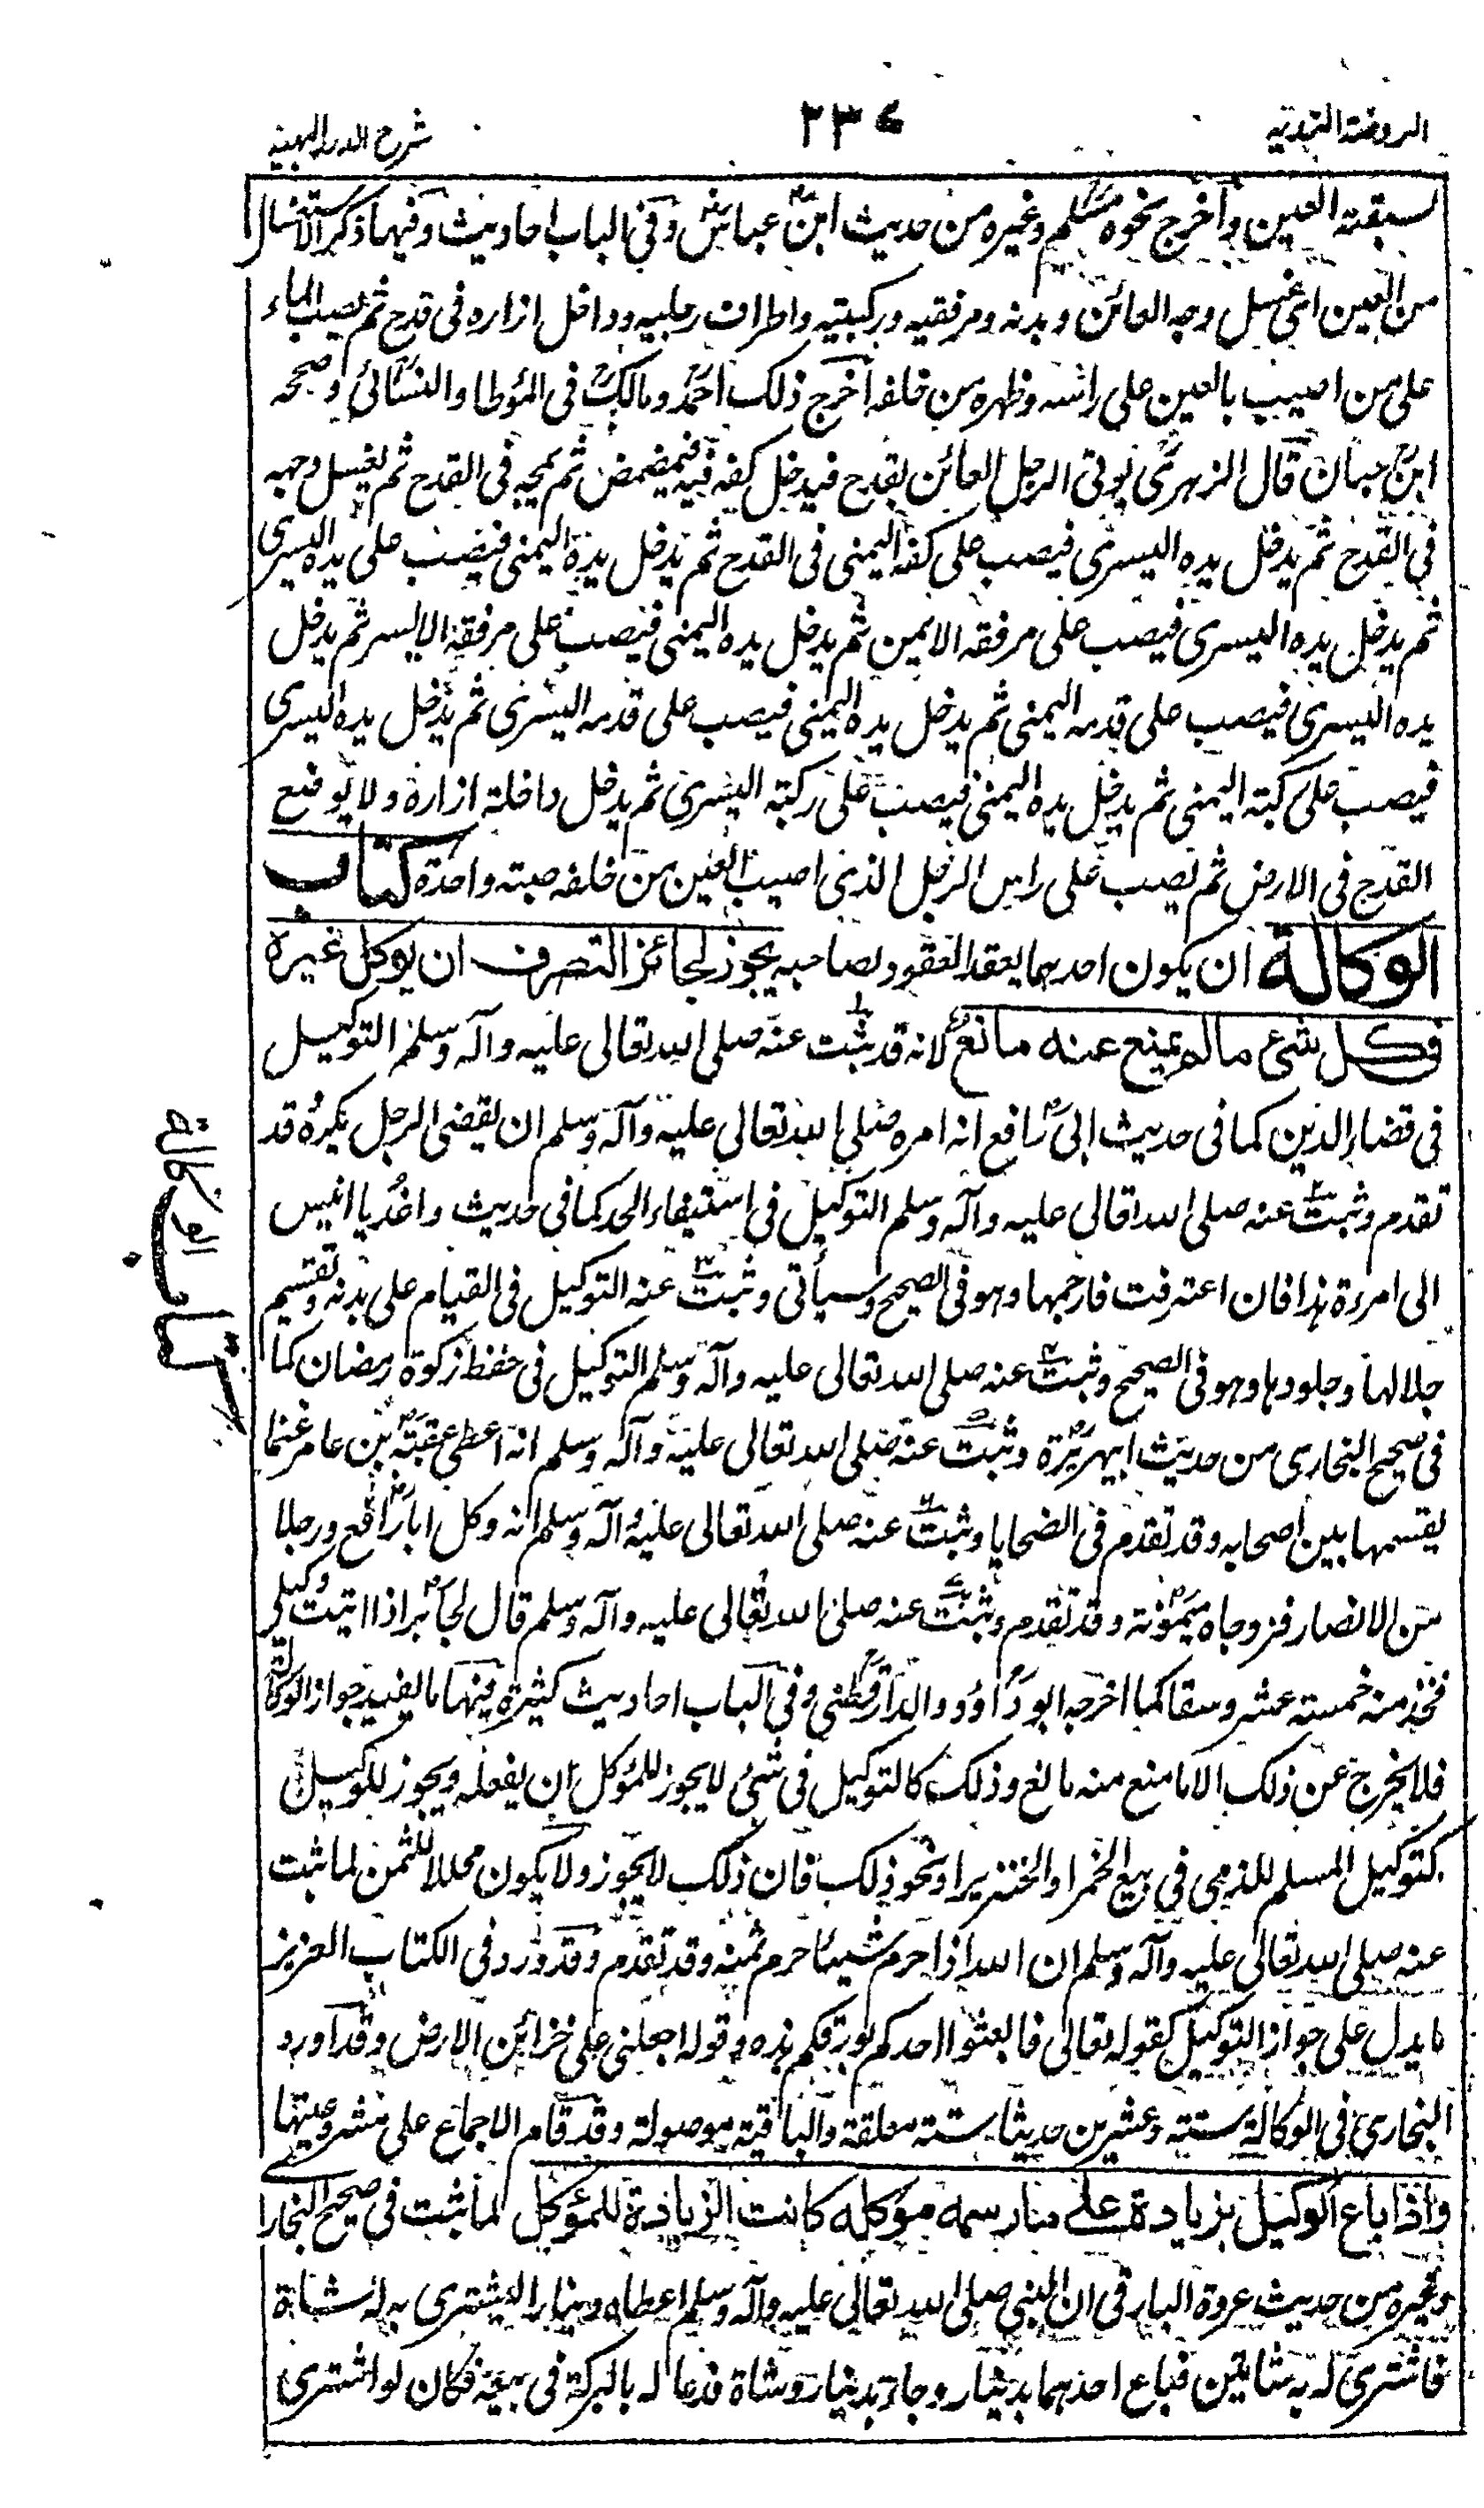 الروضة الندية
٢٣٧
شرح الدرر البهية
لسبقته العين وأخرج نحوه مسلم وغيره من حديث ابن عباس وفي الباب احاديث وفيها ذكر الاستغسال
من العين اغسل وجه العائن ويديه ومرفقيه وركبتيه واطراف رجليه وداخل ازاره في قدح ثم يصب الماء
على من اصيب بالعين على راسه وظهره من خلفه اخرج ذلك احمد ومالك في المؤطا والنسائي وصححه
ابن حبان قال الزهري يوتى الرجل العائن بقدح فيدخل كفه فيه فيمضمض ثم يمجه في القدح ثم يغسل وجهه
في القدح ثم يدخل يده اليسرى فيصب على كفه اليمنى في القدح ثم يدخل يده اليمنى فيصب على يده اليسرى
ثم يدخل يده اليسرى فيصب على مرفقه الايمن ثم يدخل يده اليمنى فيصب على مرفقه الايسر ثم يدخل
يده اليسرى فيصب على قدمه اليمنى ثم يدخل يده اليمنى فيصب على قدمه اليسرى ثم يدخل يده اليسرى
فيصب على ركبته اليمنى ثم يدخل يده اليمنى فيصب على ركبته اليسرى ثم يدخل داخلة ازاره ولا يوضع
القدح في الارض ثم يصب على راس الرجل الذي اصيب العين من خلفه صبته واحدة كتاب
الوكالة ان يكون احدهما يعقد العقود لصاحبه يجوز لجائز التصرف ان يوكل غيره
في كل شئ مالم يمنع عنه مانع لانه قد ثبت عنه صلى الله تعالى عليه وآله وسلم التوكيل
في قضاء الدين كما في حديث ابى رافع انه امره صلى الله تعالى عليه وآله وسلم ان يقضى الرجل بكره قد
تقدم وثبت عنه صلى الله تعالى عليه وآله وسلم التوكيل في استيفاء الحد كما في حديث واغد يا انيس
الى امرءة هذا فان اعترفت فارجمها وهو في الصحيح وسياتى وثبت عنه التوكيل في القيام على بدنه وتقسيم
جلالها وجلودها وهو في الصحيح وثبت عنه صلى الله تعالى عليه وآله وسلم التوكيل في حفظ زكوة رمضان كما
في صحيح البخارى من حديث ابيهريرة وثبت عنه صلى الله تعالى عليه وآله وسلم انه اعطى عقبة بن عامر غنما
يقسمها بين اصحابه وقد تقدم في الضحايا وثبت عنه صلى الله تعالى عليه وآله وسلم انه وكل ابا رافع ورجلا
من الانصار فزوجاه ميمونة وقد تقدم وثبت عنه صلى الله تعالى عليه وآله وسلم قال لجابر اذا اتيت وكيلى
فخذ منه خمسته عشر وسقا كما اخرجه ابو داؤد والدارقطني وفي الباب احاديث كثيرة فيها ما يفيد جواز الوكالة
فلا يخرج عن ذلك الا ما منع منه مانع وذلك كالتوكيل في شئ لا يجوز للموكل ان يفعله ويجوز للوكيل
كتوكيل المسلم للذمى في بيع الخمر او الخنزير او نحو ذلك فان ذلك لا يجوز ولا يكون محللا للثمن لما ثبت
عنه صلى الله تعالى عليه وآله وسلم ان الله اذا حرم شيئا حرم ثمنه وقد تقدم وقد ورد في الكتاب العزيز
ما يدل على جواز التوكيل كقوله تعالى فابعثوا احدكم بورقكم هذه وقوله اجعلنى على خزائن الارض وقد اورد
البخارى في الوكالة ستته وعشرين حديثا ستته معلقة والباقية موصولة وقد قام الاجماع على مشروعيتها
واذا باع الوكيل بزيادة على ما رسمه موكله كانت الزيادة للموكل لما ثبت في صحيح البخارى
وغيره من حديث عروة البارقى ان النبى صلى الله تعالى عليه وآله وسلم اعطاه دينارا ليشترى به له شاة
فاشترى له به شاتين فباع احدهما بدينار وجاءه بدينار وشاة فدعا له بالبركة في بيعه فكان لو اشترى
كتاب الوكالة